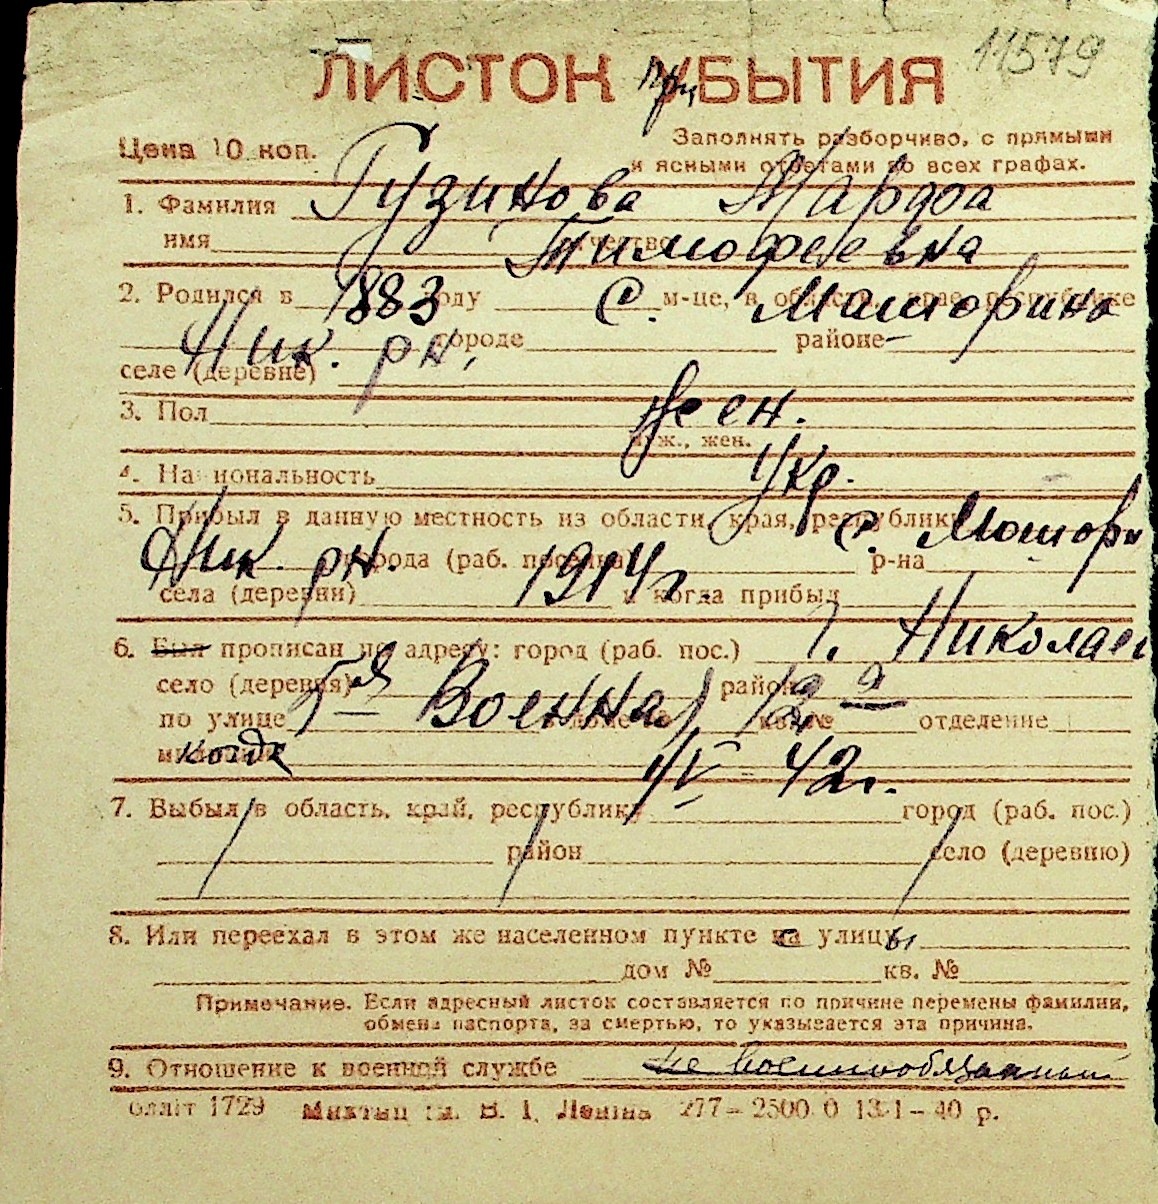 11579
ЛИСТОК приБЫТИЯ
Цена 10 коп.
Заполнять разборчиво, с прямыми
и ясными ответами во всех графах.
1. Фамилия Гузинова Марфа
имя отчество Тимофеевна
2. Родился в 1883 году м-це, в области, крае, республике с. Мошорино
Ник. рн. городе районе
селе (деревне)
3. Пол жен.
муж., жен.
4. Национальность Укр.
5. Прибыл в данную местность из области, края, республики с. Мошори
Ник. рн. города (раб. поселка) р-на
села (деревни) 1914 г и когда прибыл
6. Был прописан по адресу: город (раб. пос.) г. Николаев
село (деревня) район
по улице 5-я Военная дом № 12 а кв. № отделение
милиции когда 1/V - 42 г.
7. Выбыл в область, край, республику город (раб. пос.)
район село (деревню)
8. Или переехал в этом же населенном пункте с улицы
дом № кв. №
Примечание. Если адресный листок составляется по причине перемены фамилии,
обмена паспорта, за смертью, то указывается эта причина.
9. Отношение к военной службе не военнообязанный
Оллiт 1729 В. I. Ленiна 277 – 2500.0 13-1 – 40 р.